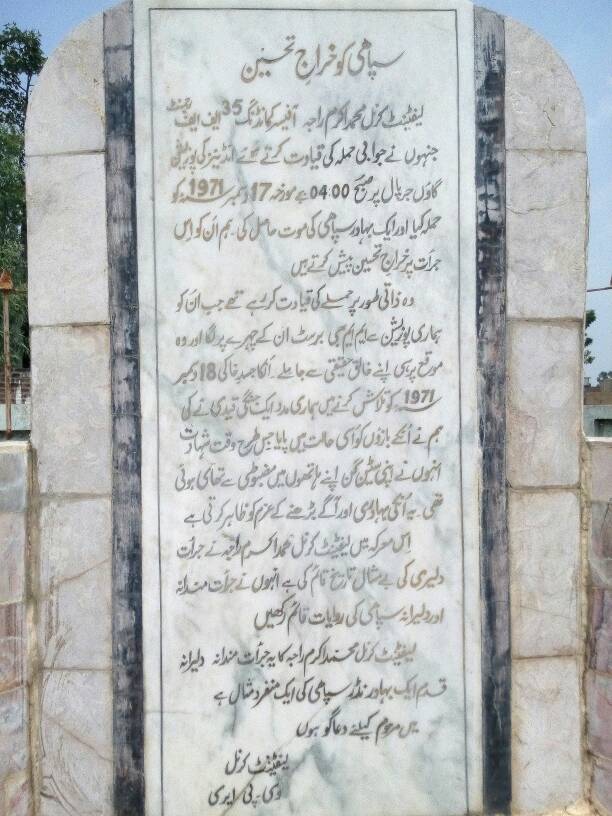 سپاھی کو خراجِ تحسین
لیفٹیننٹ کرنل محمد اکرم راجہ آفیسر کمانڈنگ 35 ایف ایف رجمنٹ
جنہوں نے جوابی حملہ کی قیادت کرتے ہوئے انڈینز کی پوزیشن
گاؤں جرپال پر صبح 04:00 بجے مورخہ 17 دسمبر سنہ 1971 کو
حملہ کیا اور ایک بہادر سپاھی کی موت حاصل کی۔ ہم ان کو اِس
جرات پر خراجِ تحسین پیش کرتے ہیں
وہ ذاتی طور پر حملے کی قیادت کر رہے تھے جب ان کو
ہماری پوزیشن سے ایم ایم جی برسٹ ان کے چہرے پر لگا اور وہ
موقع پر ہی اپنے خالق حقیقی سے جا ملے۔ انکا جسد خاکی 18 دسمبر
سنہ 1971 کو تلاش کرنے میں ہماری مدد ایک جنگی قیدی نے کی
ہم نے انکے بازوں کو اسی حالت میں پایا جس طرح وقت شہادت
انہوں نے اپنی سٹین گن اپنے ہاتھوں میں مضبوطی سے تھامی ہوئی
تھی۔ یہ اُنکی بہادری اور آگے بڑھنے کے عزم کو ظاہر کرتی ہے
اِس معرکہ میں لیفٹیننٹ کرنل محمد اکرم راجہ نے جرأت
دلیری کی بے مثال تاریخ قائم کی ہے انہوں نے جرأت مندانہ
اور دلیرانہ سپاہی کی روایات قائم رکھیں
لیفٹیننٹ کرنل محمد اکرم راجہ کا یہ جرأت مندانہ دلیرانہ
قدم ایک بہادر نڈر سپاھی کی ایک منفرد مثال ہے
میں مرحوم کیلئے دعا گو ہوں
لیفٹیننٹ کرنل
وی۔ پی ایری